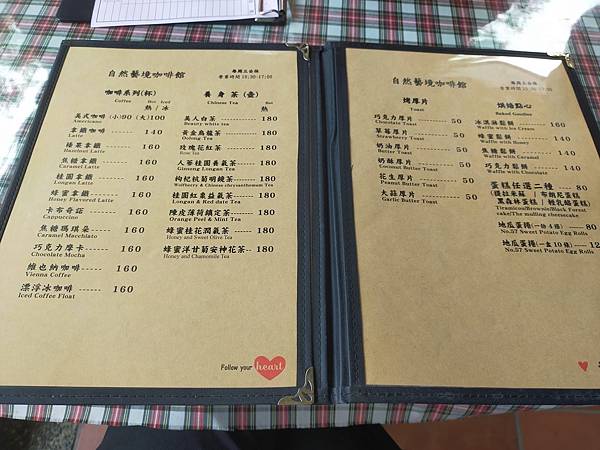 自然藝境咖啡館
每周三公休
營業時間10:30-17:00
咖啡系列(杯)
Coffee
Hot Iced
熱 / 冰
美式咖啡 (小)90 (大)100
Americano
拿鐵咖啡 ------ 140
Latte
榛果拿鐵 ------ 160
Hazelnut Latte
焦糖拿鐵 ------ 160
Caramel Latte
桂圓拿鐵 ------ 160
Longan Latte
蜂蜜拿鐵 ------ 160
Honey Flavored Latte
卡布奇諾 ------ 160
Cappuccino
焦糖瑪琪朵---- 160
Caramel Macchiato
巧克力摩卡---- 160
Chocolate Mocha
維也納咖啡---- 160
Vienna Coffee
漂浮冰咖啡---- 160
Iced Coffee Float
養身茶(壺)
Chinese Tea
Hot
熱
美人白茶------180
Beauty white tea
黃金烏龍茶----180
Oolong Tea
玫瑰花紅茶----180
Rose tea
人蔘桂圓養氣茶---180
Ginseng Longan Tea
枸杞杭菊明鏡茶---180
Wolfberry & Chinese chrysanthemum Tea
桂圓紅棗益氣茶---180
Longan & Red date Tea
陳皮薄荷鎮定茶---180
Orange Peel & Mint Tea
蜂蜜桂花潤氣茶---180
Honey and Sweet Olive Tea
蜂蜜洋甘菊安神花茶--180
Honey and Chamomile Tea
Follow your heart
自然藝境咖啡館
每周三公休
營業時間10:30-17:00
烤厚片
Toast
巧克力厚片----- 50
Chocolate Toast
草莓厚片------ 50
Strawberry Toast
奶油厚片------ 50
Butter Toast
奶酥厚片------ 50
花生厚片------ 50
Peanut Butter Toast
大蒜厚片------ 50
Garlic Butter Toast
烘焙點心
Baked Goodies
冰淇淋鬆餅---- 160
Waffle with Ice Cream
蜂蜜鬆餅------ 140
Waffle with Honey
焦糖鬆餅------ 140
Waffle with Caramel
巧克力鬆餅---- 140
Waffle with Chocolate
蛋糕任選二種---- 80
(提拉米蘇 / 布朗尼蛋糕
黑森林蛋糕 / 輕乳酪蛋糕)
Tiramisu/Brownie/Black Forest
cake/The molting cheesecake
地瓜蛋捲(一份4條) 80
No.57 Sweet Potato Egg Rolls
地瓜蛋捲(一盒10條)----
No.57 Sweet Potato Egg Rolls